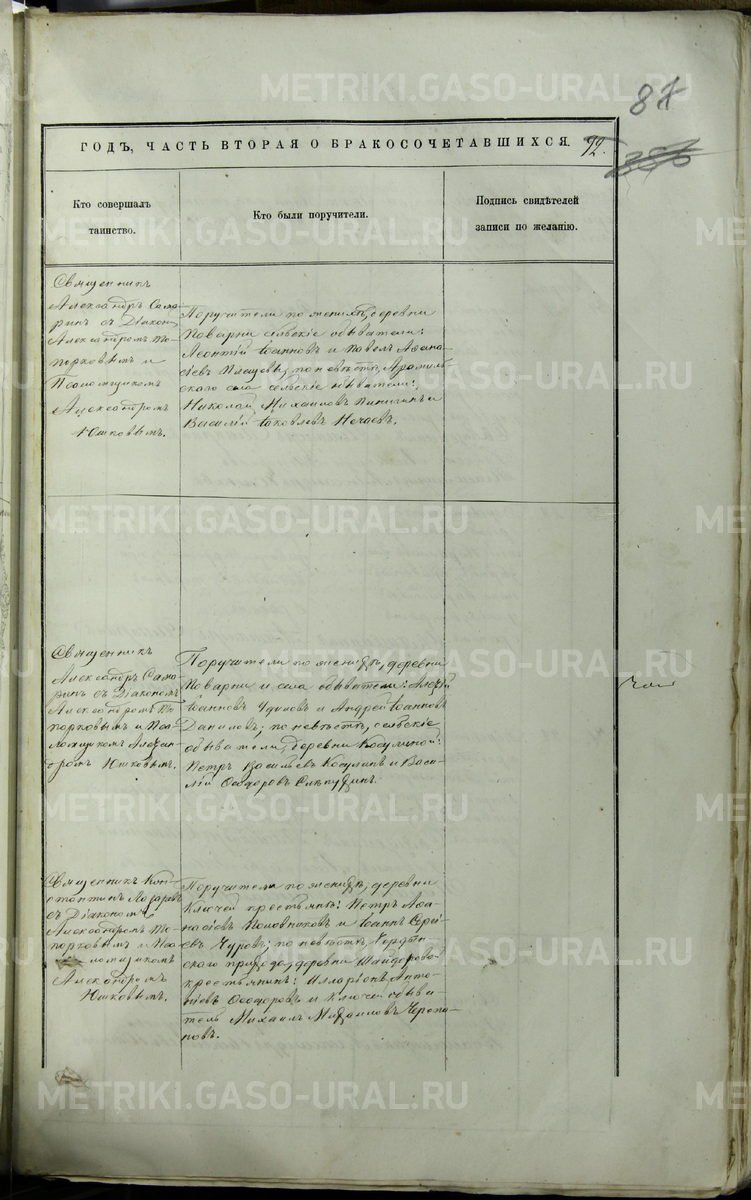 87
ГОДЪ, ЧАСТЬ ВТОРАЯ О БРАКОСОЧЕТАВШИХСЯ. 72.
Кто совершалъ
таинство.
Кто были поручители.
Подпись свидѣтелей
записи по желанію.
Священникъ
Александръ Сама-
ринъ съ Діакон.
Александромъ То-
порковымъ и
Псаломщикомъ
Александромъ
Юшковымъ.
Поручители по женихѣ, деревни
Поварни сельскіе обыватели:
Леонтій Іоанновъ и Павелъ Аѳана-
сіевъ; по невѣстѣ, Арамиль-
скаго села сельскіе обыватели:
Николай Михаиловъ и
Василій Іаковлевъ Нечаевъ.
Священникъ
Александръ Сама-
ринъ съ Діакономъ
Александромъ То-
порковымъ и Пса-
ломщикомъ Алексан-
дромъ Юшковымъ.
Поручители по женихѣ, деревни
Поварни и села обыватели:
Іоанновъ и Андрей Іоанновъ
Даниловъ; по невѣстѣ, сельскіе
обыватели, деревни Косулиной:
Петръ Васильевъ Косулинъ и Васи-
лій Ѳеодоровъ
Священникъ Кон-
стантинъ Лазаревъ
съ Діакономъ
Александромъ То-
порковымъ и Пса-
ломщикомъ
Александромъ
Юшковымъ.
Поручители по женихѣ, деревни
Ключей крестьяне: Петръ Аѳа-
насіевъ Половниковъ и Іоаннъ Сергі-
евъ Чуровъ; по невѣстѣ,
скаго прихода, деревни
крестьянинъ: Илларіонъ Анто-
ніевъ Ѳеодоровъ и Ключей обыва-
тель Михаилъ Михаиловъ Черепа-
новъ.
METRIKI.GASO-URAL.RU